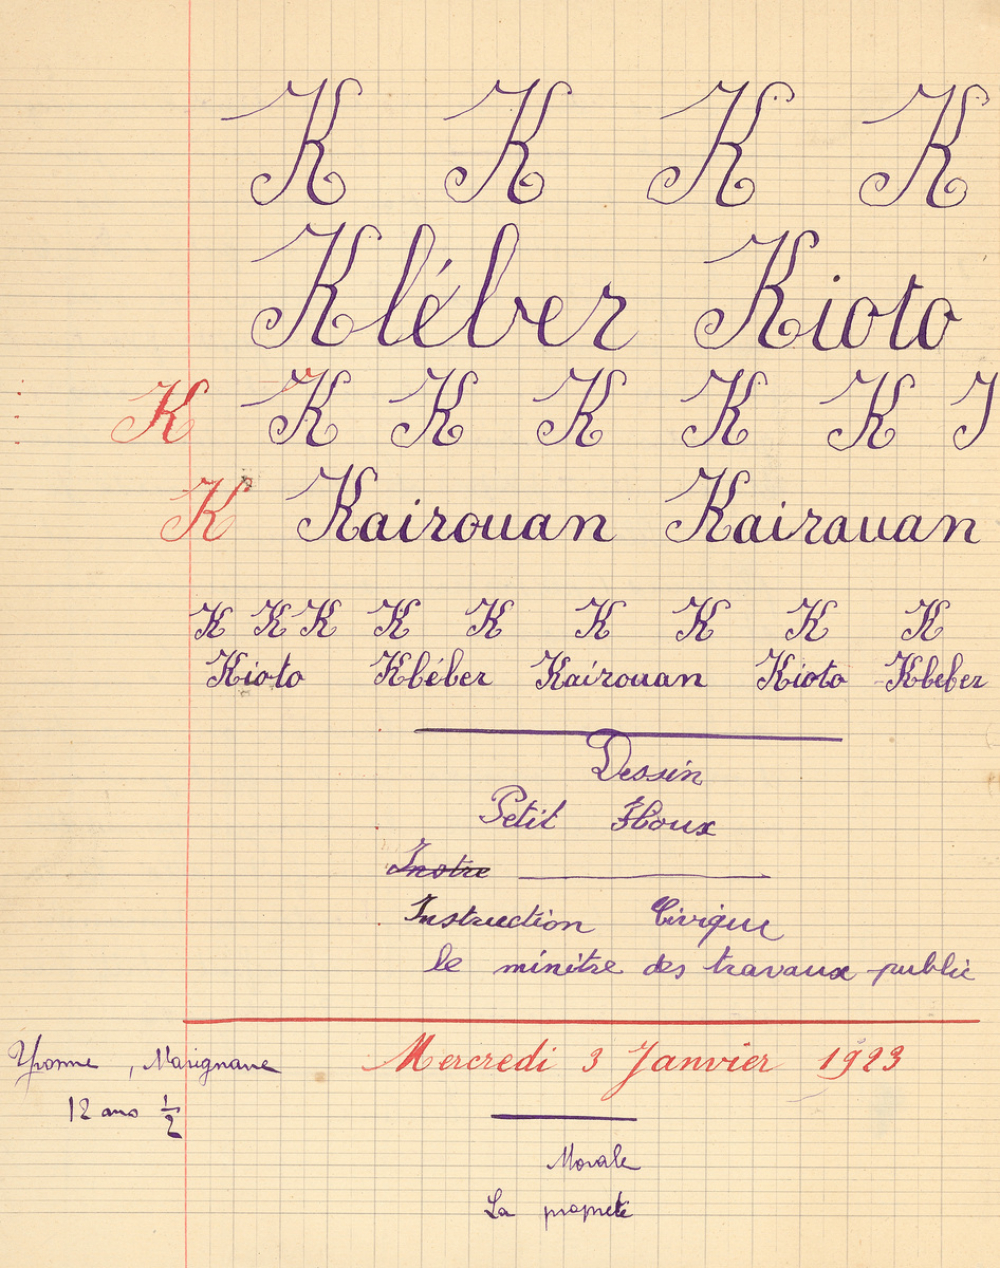 K K K K
Kléber Kioto
K K K K K K
K Kairouan Kairauan
K K K K K K K K K
Kioto Kléber Kairouan Kioto Kleber
Dessin
Petit Houx
Instre
Instruction Civique
le minitre des travaux public
Yvonne, Marignane
Mercredi 3 Janvier 1923
12 ans 1/2
Morale
La propreté